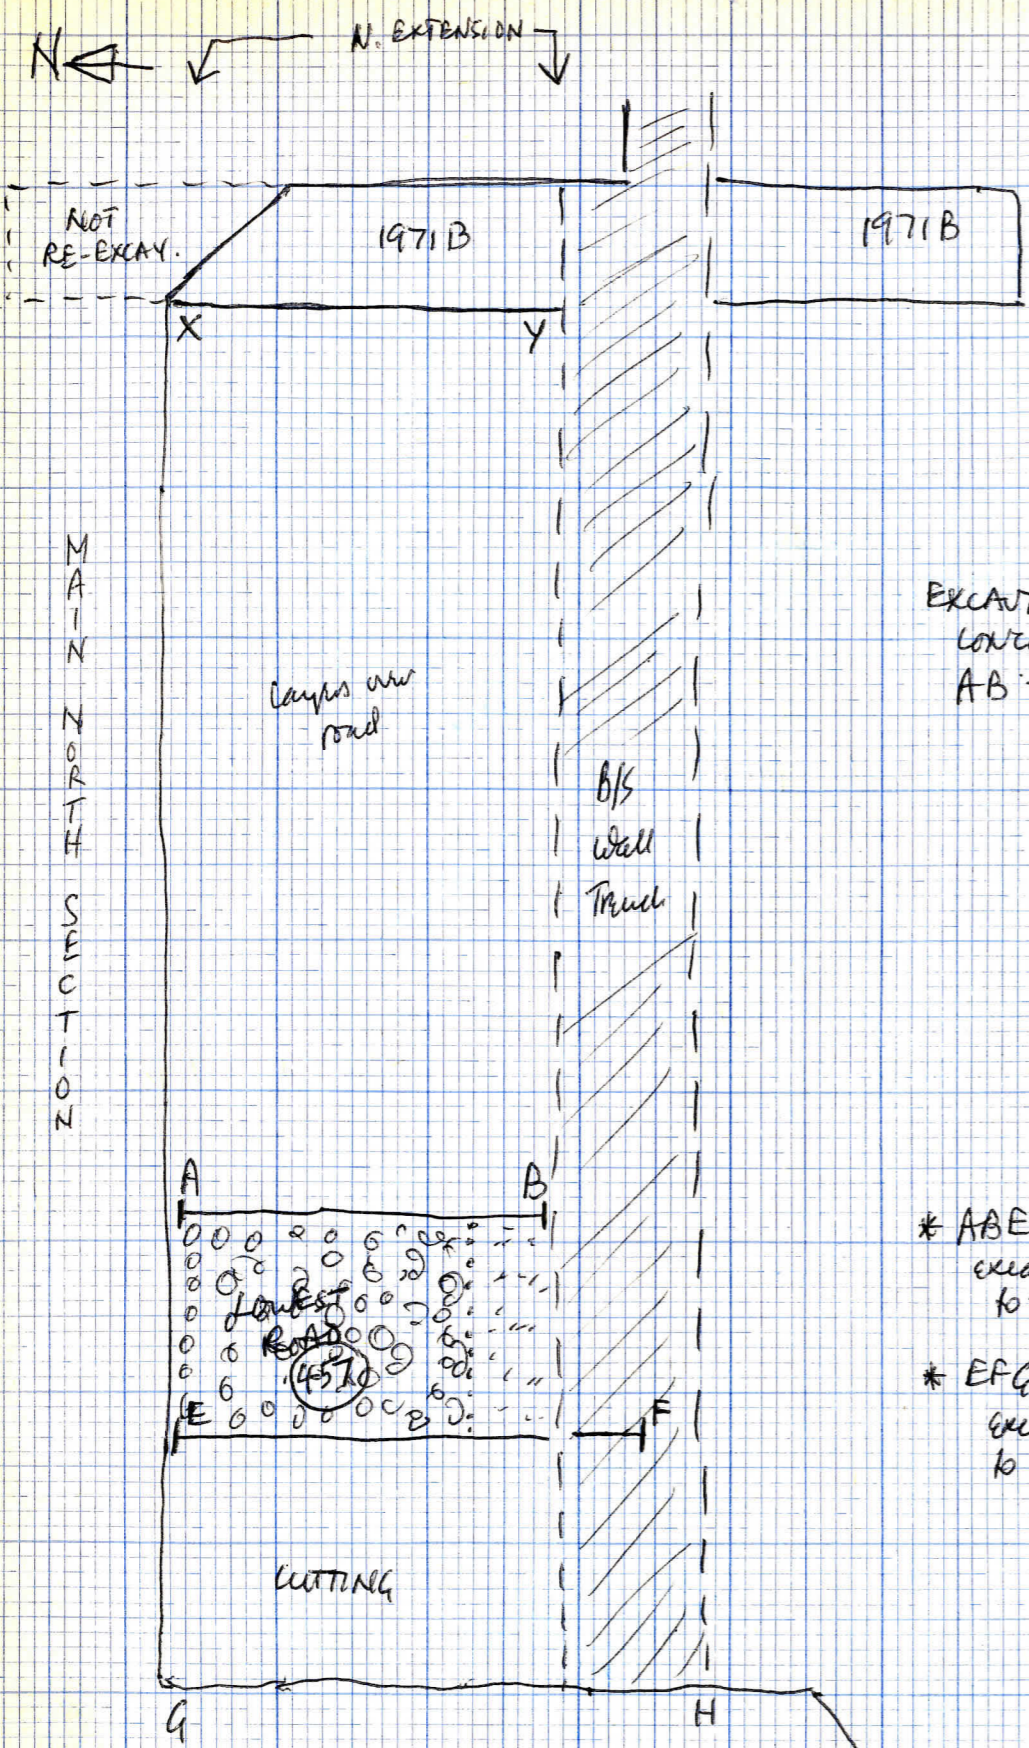 N
N. EXTENSION
NOT
RE-EXCAV.
1971B
1971B
X
Y
MAIN NORTH SECTION
layers over
road
EXCAVT
CONC
AB
B/S
Wall
Trench
A
B
LOWEST
ROAD
457
E
F
* ABE
exca
to
* EFG
exc
to
CUTTING
G
H